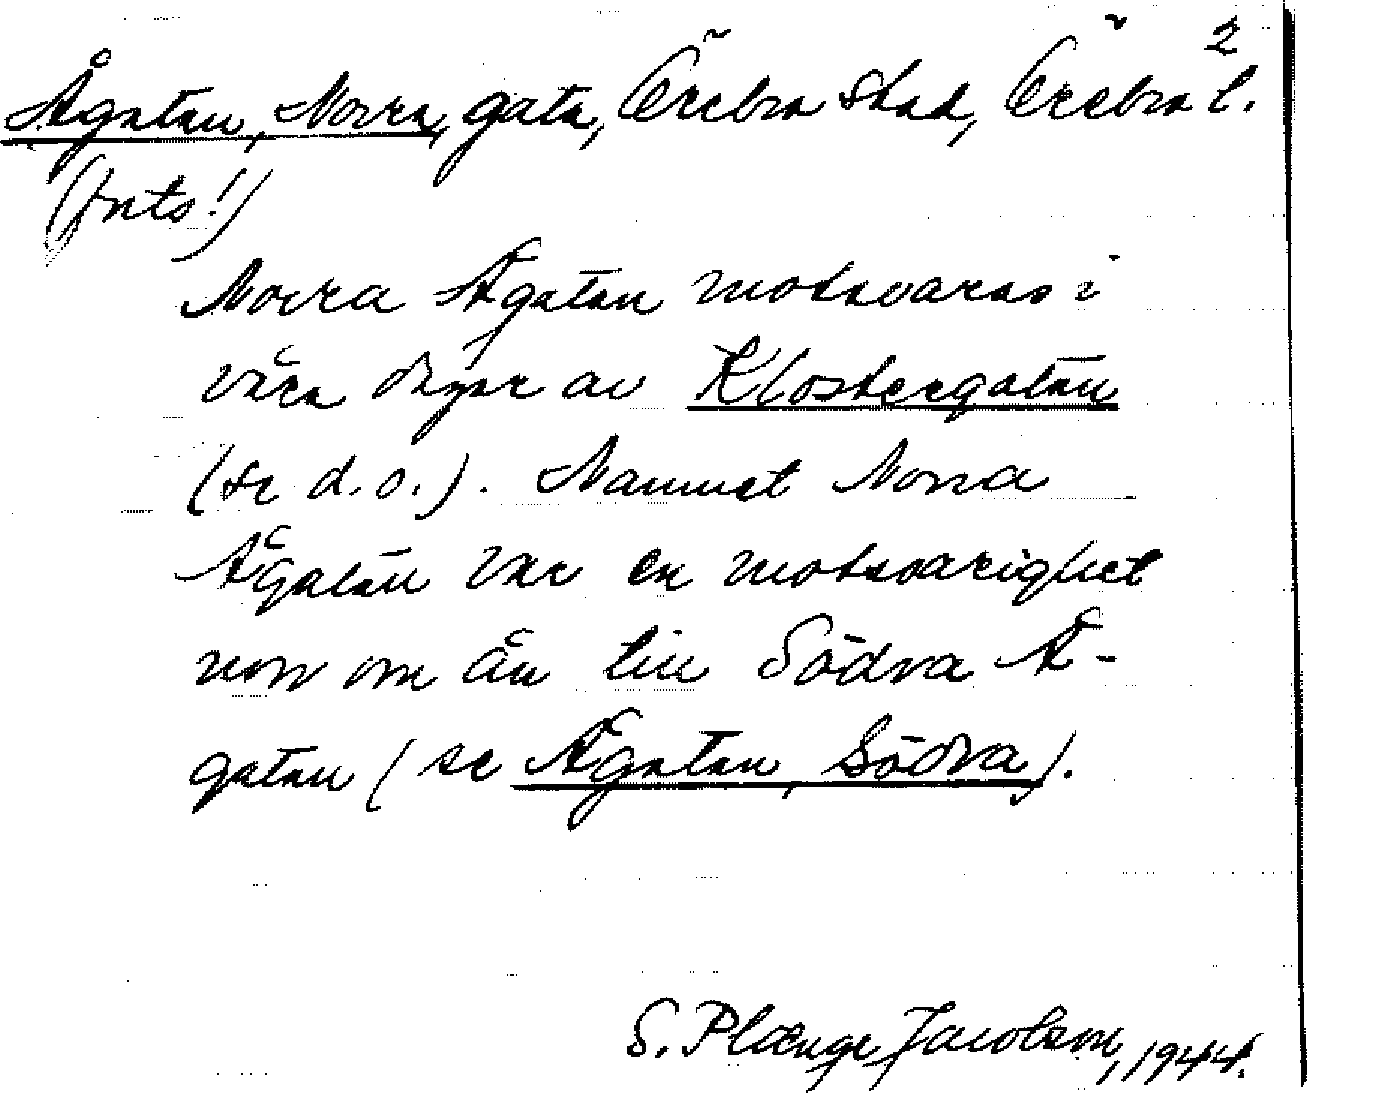 2
Ågatan, Norra, gata, Örebro stad, Örebro l.
(forts!)
Norra Ågatan motsvaras i
våra dagar av Klostergatan
(se d.o.). Namnet Norra
Ågatan var en motsvarighet
norr om ån till Södra Å-
gatan (se Ågatan, Södra).
S. Plænge Jacobson, 1944.